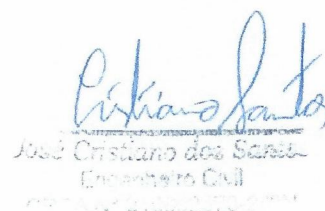 Cristiano Santos
José Cristiano dos Santos
Engenheiro Civil